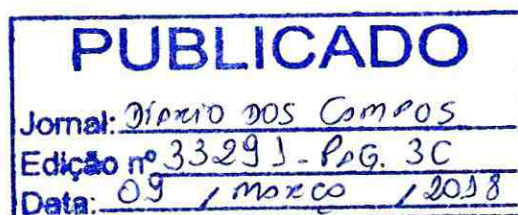 PUBLICADO
Jornal: Diário dos Campos
Edição nº 33291 - PAG. 3C
Data: 09 / março / 2018